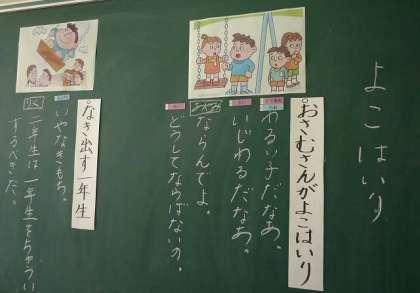 よこはいり
○おさむさんがよこはいり
わるッチだなあ。
いじわるだなあ。
ならんでよ。
どうしてならばないの。
○なき出す一年生
いやなきもち。
二年生は一年生をちゅうい
するべきだ。